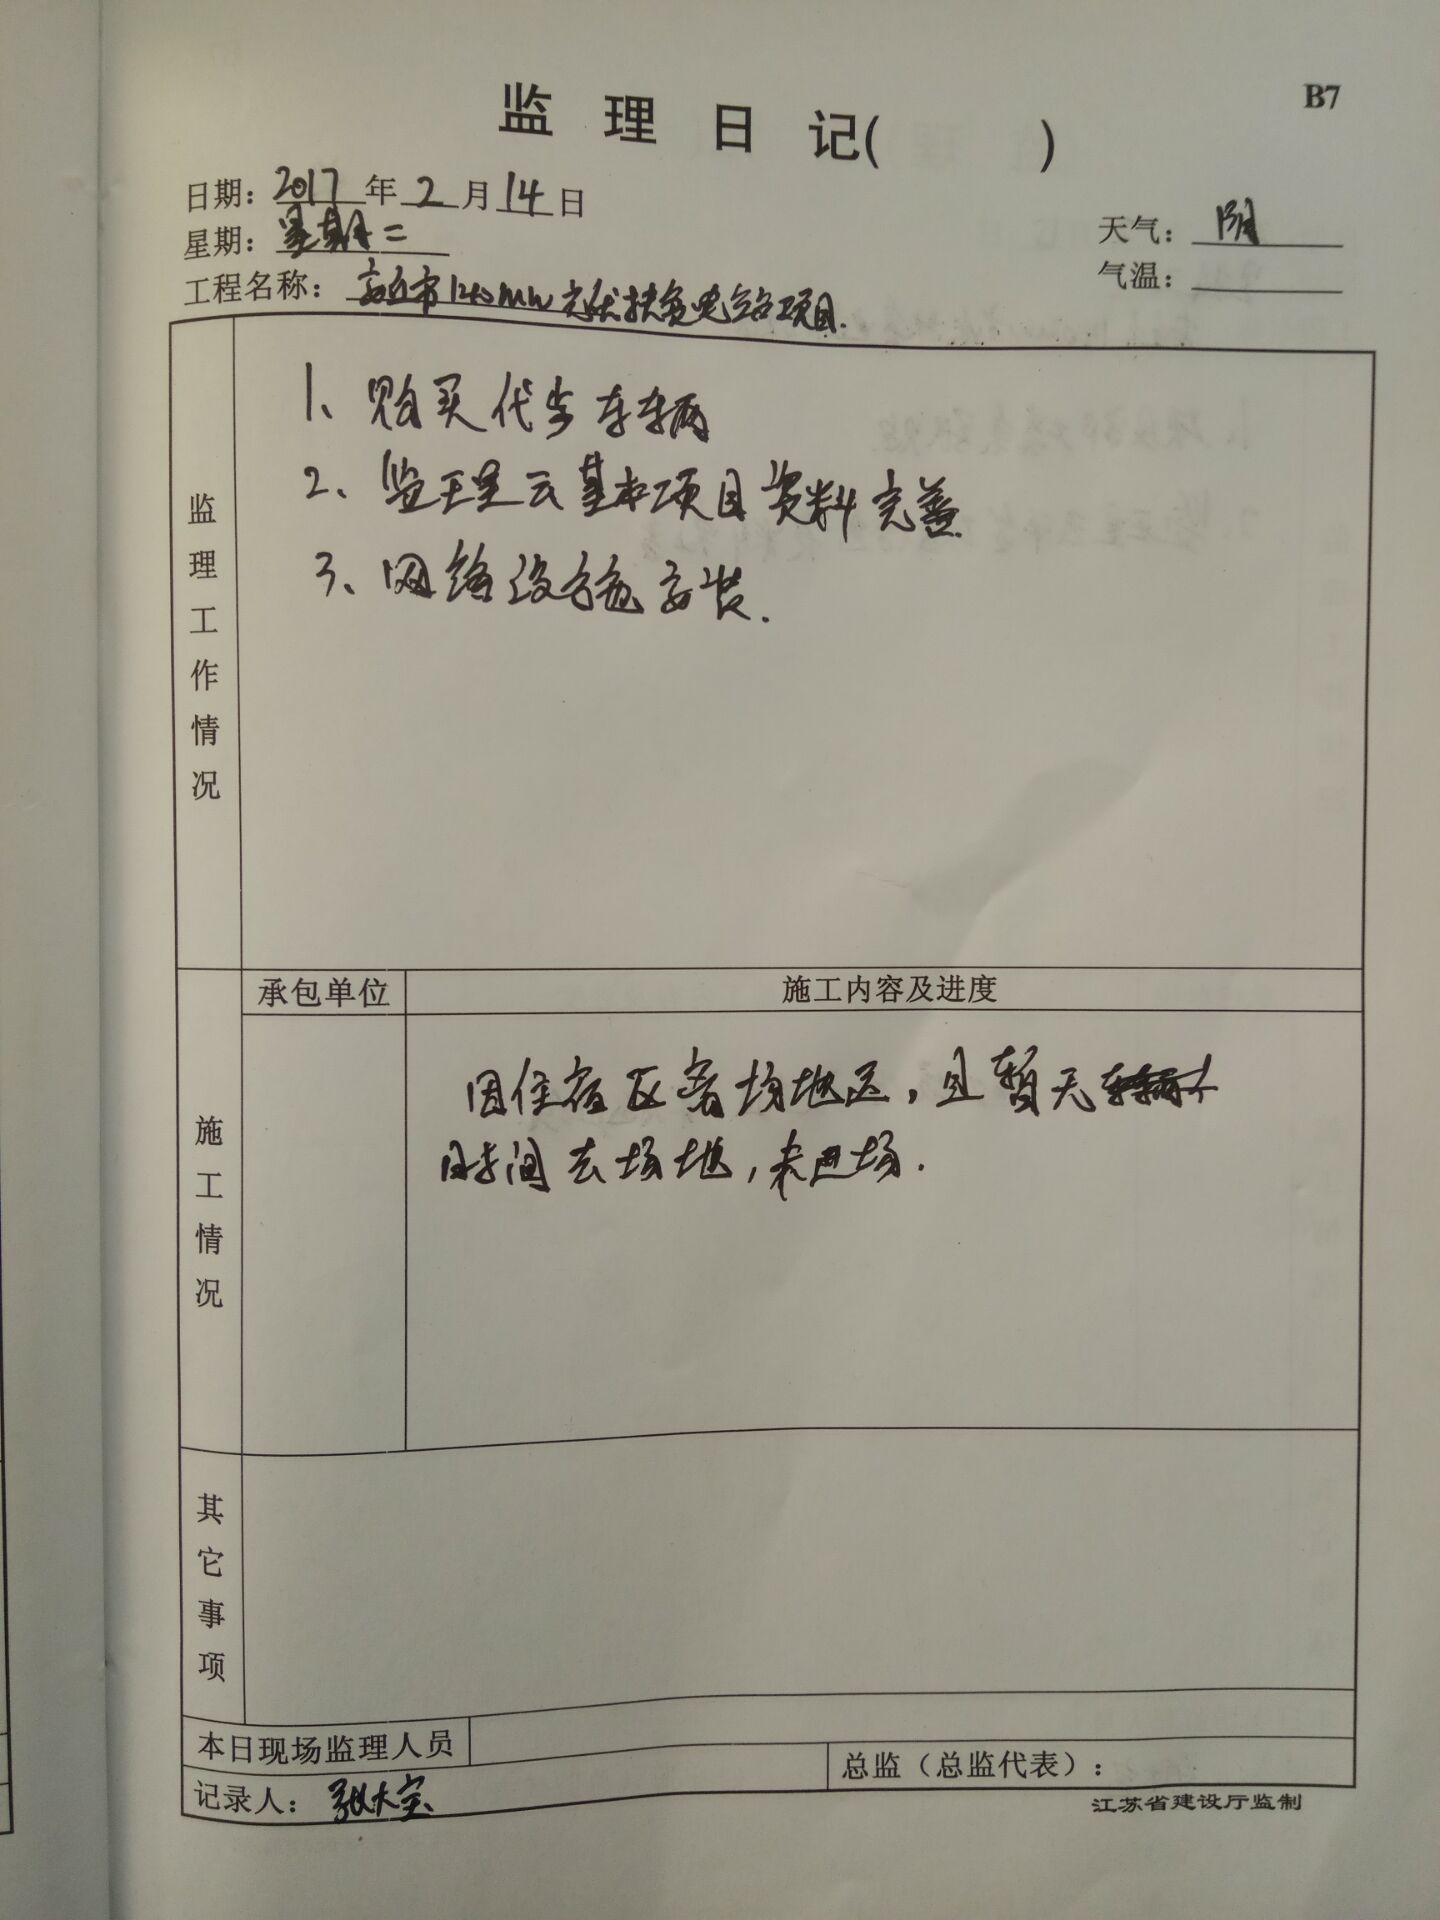 B7
监理日记( )
日期：2017年2月14日
星期：星期二
天气：阴
工程名称：安丘市120MW光伏扶贫电站项目.
气温：
监理工作情况
1、购买代步车辆
2、监理云基本项目资料完善
3、网络设施安装.
承包单位 施工内容及进度
施工情况
因住宿区离场地远，且暂无
时间去场地，未进场.
其它事项
本日现场监理人员
总监（总监代表）：
记录人：张大宝
江苏省建设厅监制